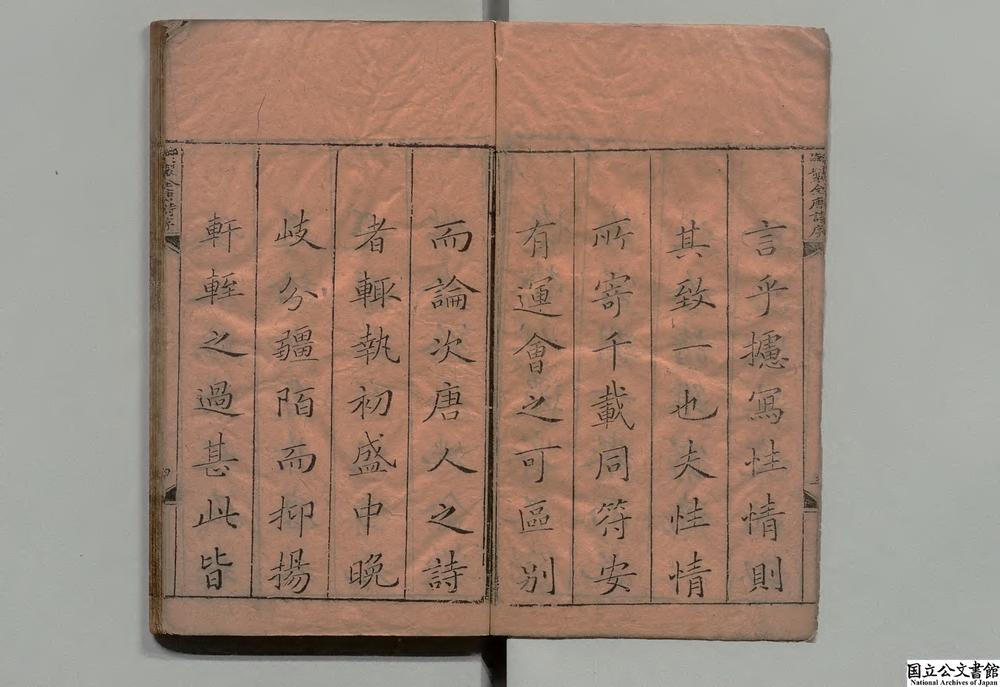 言乎攄寫性情則
其致一也夫性情
所寄千載同符安
有運會之可區别
而論次唐人之詩
者輒執初盛中晚
岐分疆陌而抑揚
軒輊之過甚此皆
製全唐詩序
製全唐詩序
四
国立公文書館
National Archives of Japan